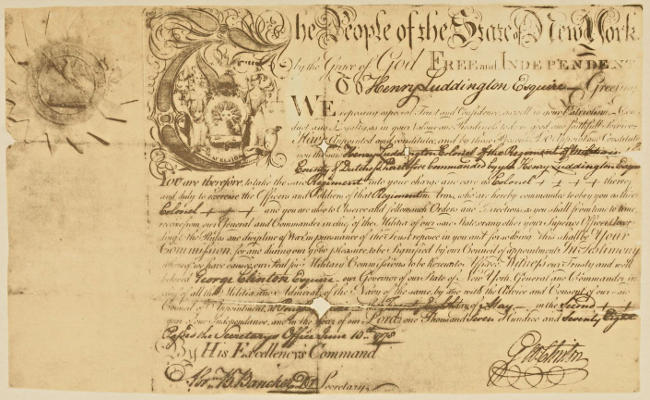 The People of the State of New York.
by the Grace of God FREE and INDEPENDENT
TO Henry Luddington Esquire Greeting
WE reposing especial Trust and Confidence, as well in your Patriotism, Con-
duct and Loyalty, as in your Valour and Readiness to do us good and faithful Service
Have appointed and constituted, and by these Presents Do appoint and Constitute
you the said Henry Luddington Colonel of the Regiment of Militia in the
County of Dutchess heretofore commanded by Henry Luddington Esquire
YOU are therefore, to take the said Regiment into your charge and care, as Colonel + + + thereof
and duly to exercise the Officers and Soldiers of that Regiment in Arms, who are hereby commanded to obey you as their
Colonel + + + and you are also to Observe and follow such Orders and Directions, as you shall from time to time
receive from our General and Commander in chief of the Militia of our said State, or any other your Superior Officer, accor-
ding to the Rules and discipline of War, in pursuance of the Trust reposed in you, and for so doing, this shall be YOUR
COMMISSION, for and during our good pleasure to be Signified by our Council of appointment. IN Testimony
whereof we have caused our Seal for Military Commissions to be hereunto affixed. WITNESS our Trusty and well
beloved George Clinton Esquire, our Governor of our State of New York General and Commander in
chief of all the Militia, and Admiral of the Navy of the same, by and with the Advice and Consent of our said
Council of Appointment, at the Twenty day of May in the Second + +
year of our Independence, and in the Year of our Lord, one Thousand Seven Hundred and Seventy Eight
Passed the Secretarys Office June 10th 1778
By HIS Excellency's Command
B. Bancker Dy Secretary
Geo Clinton